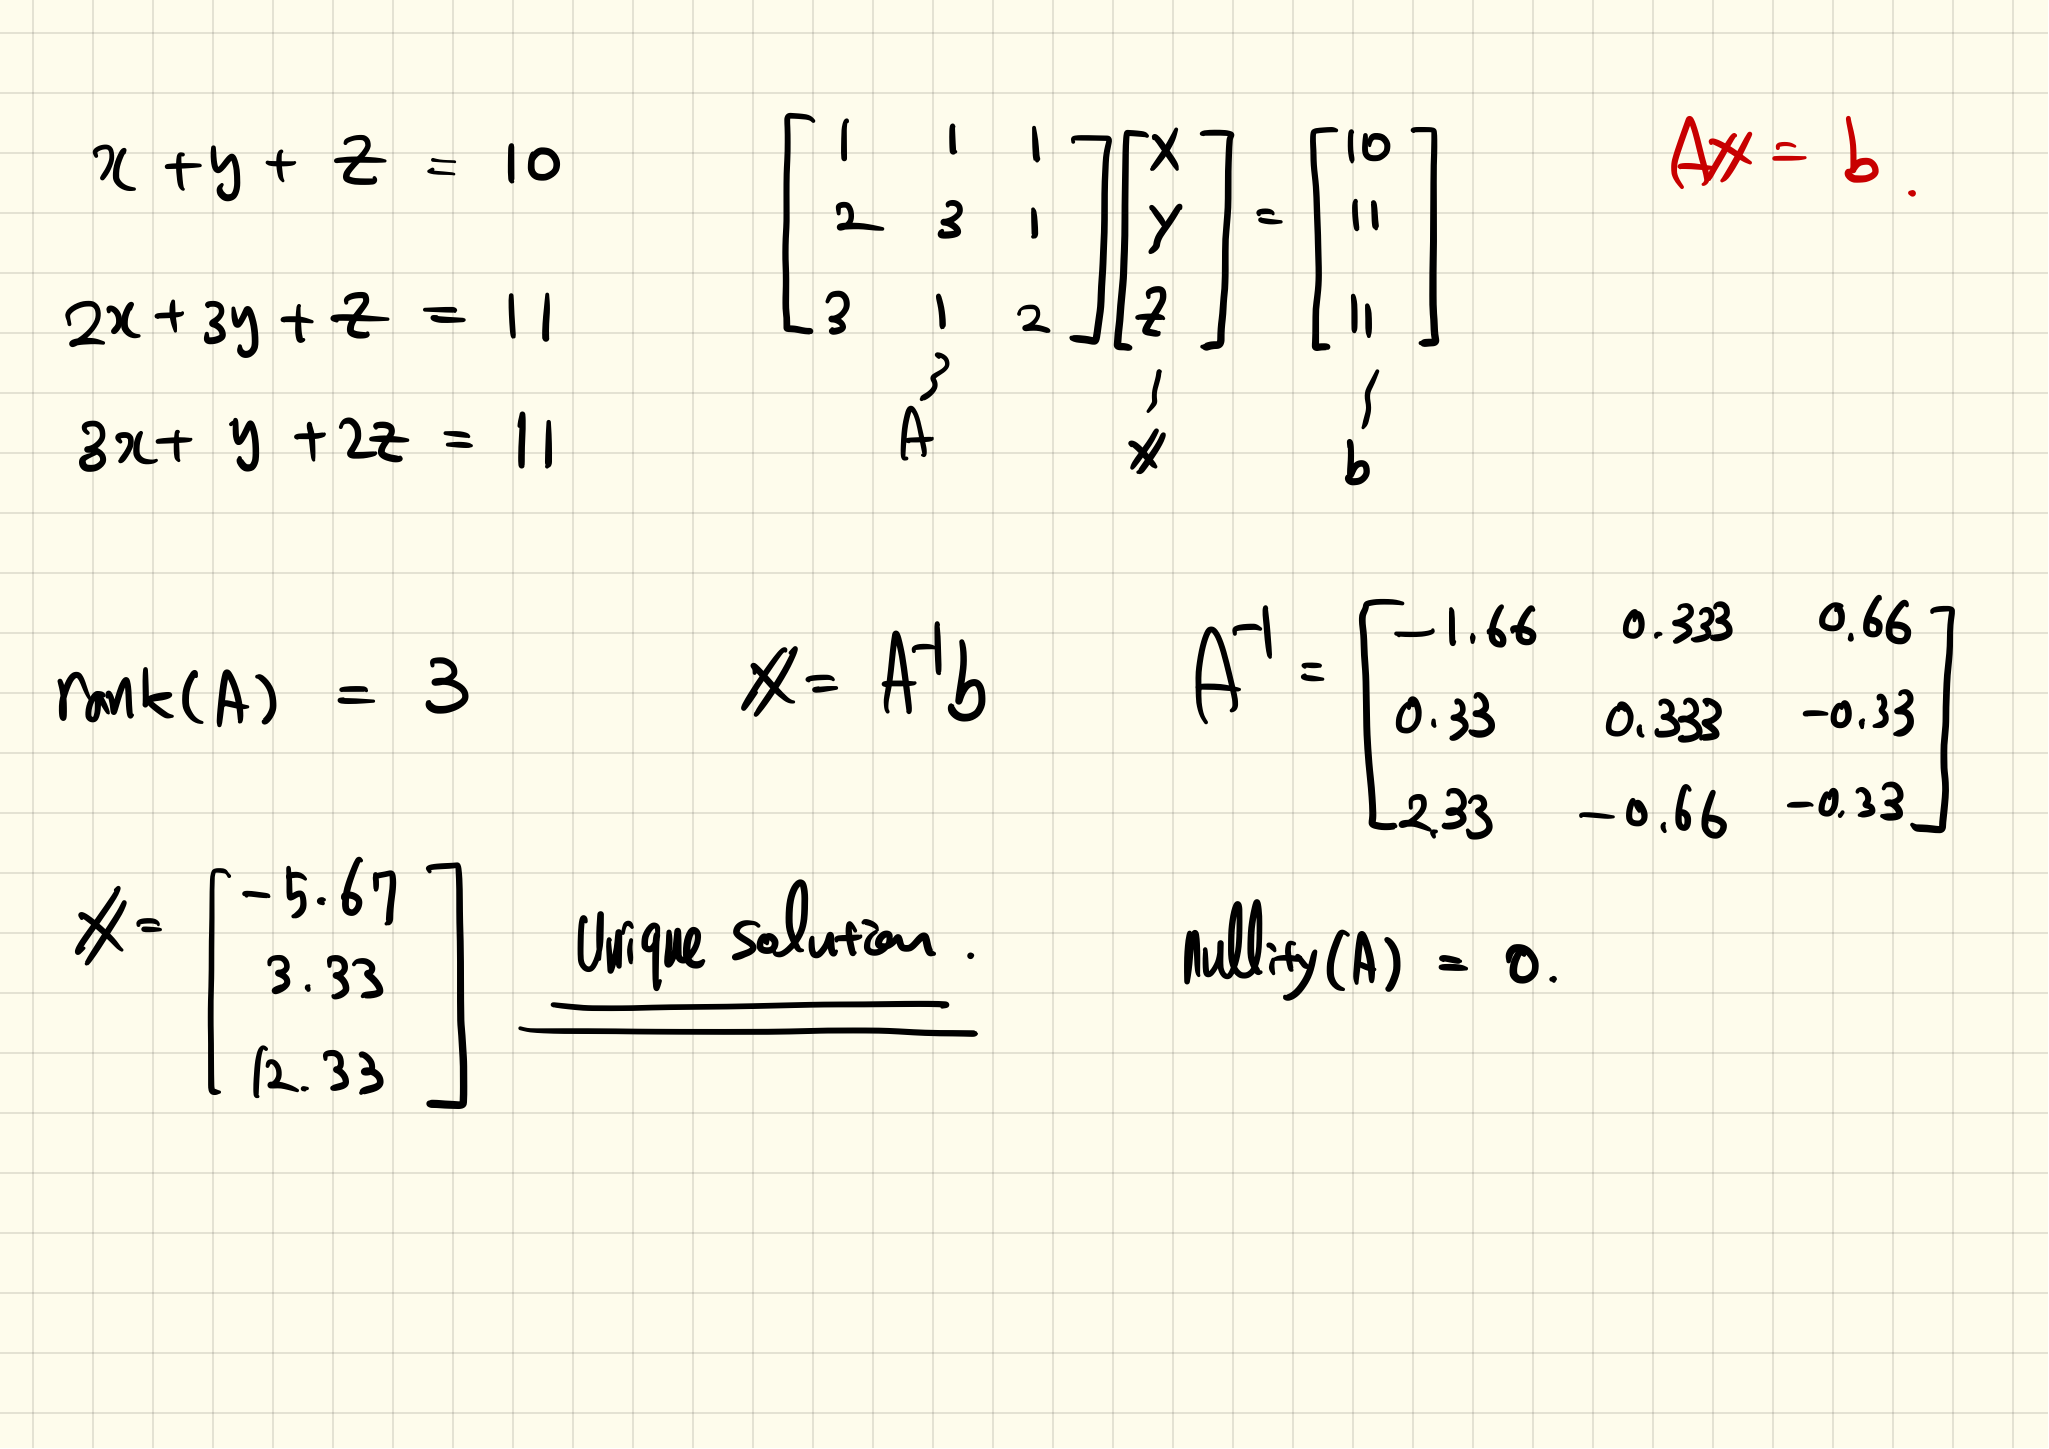 x + y + z = 10
2x + 3y + z = 11
3x + y + 2z = 11
[1 1 1] [x] = [10]
[2 3 1] [y] = [11]
[3 1 2] [z] = [11]
A x b
Ax = b.
rank(A) = 3
x = A⁻¹b
A⁻¹ = [-1.66 0.333 0.66]
[0.33 0.333 -0.33]
[2.33 -0.66 -0.33]
x = [-5.67]
[3.33]
[12.33]
Unique solution.
nullity(A) = 0.